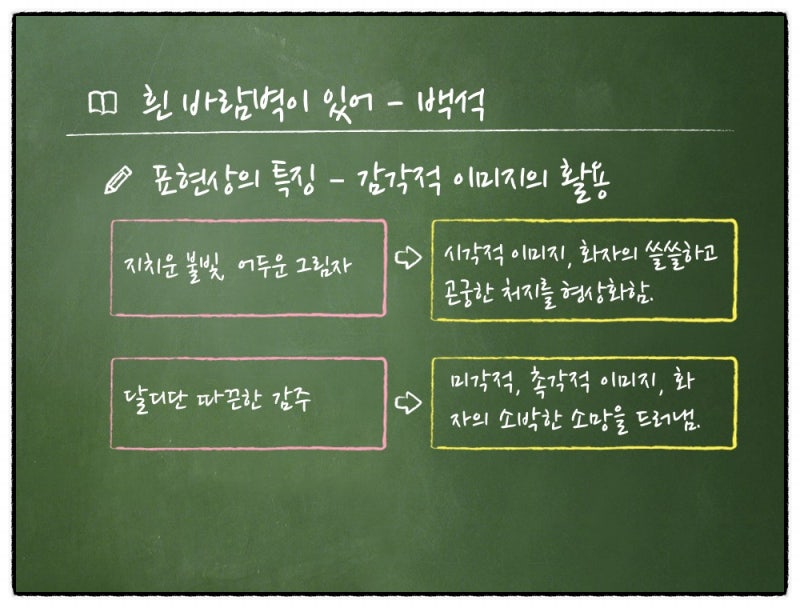 흰 바람벽이 있어 - 백석
표현상의 특징 - 감각적 이미지의 활용
지치운 불빛, 어두운 그림자
시각적 이미지, 화자의 쓸쓸하고
곤궁한 처지를 형상화함.
달디단 따끈한 감주
미각적, 촉각적 이미지, 화
자의 소박한 소망을 드러냄.